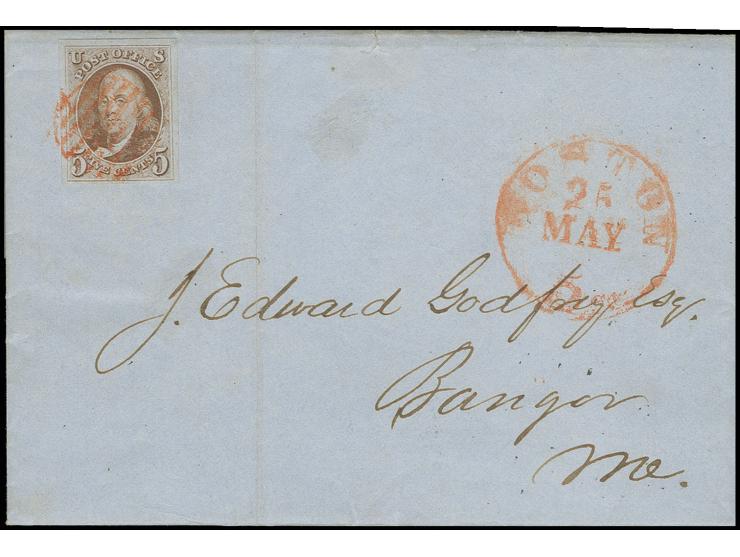 U S
POST OFFICE
5 FIVE CENTS 5
BOSTON
25
MAY
5 cts
J. Edward Godfrey Esq.
Bangor
Me.